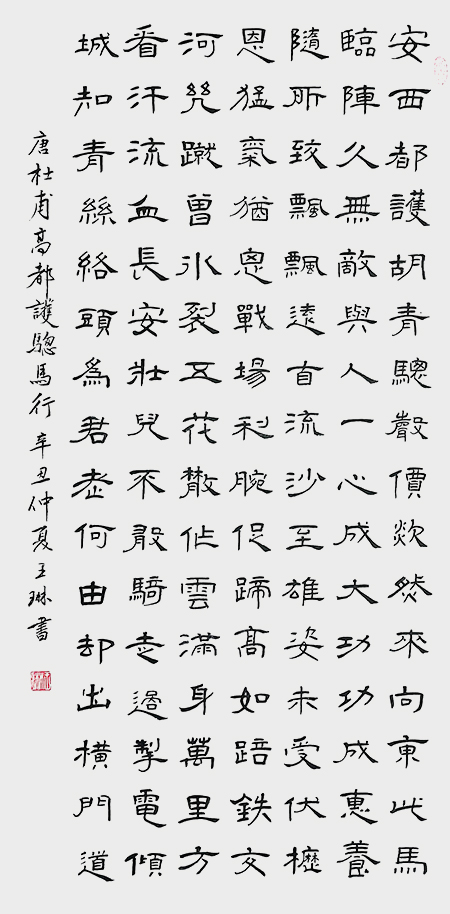 安西都護胡青驄聲價欻然來向東此馬
臨陣久無敵與人一心成大功功成惠養
隨所致飄飄遠自流沙至雄姿未受伏櫪
恩猛氣猶思戰場利腕促蹄高如踣鉄交
河幾蹴曾冰裂五花散作雲滿身萬里方
看汗流血長安壯兒不敢騎走過掣電傾
城知青絲絡頭為君老何由却出橫門道
唐杜甫高都護驄馬行 辛丑仲夏王琳書